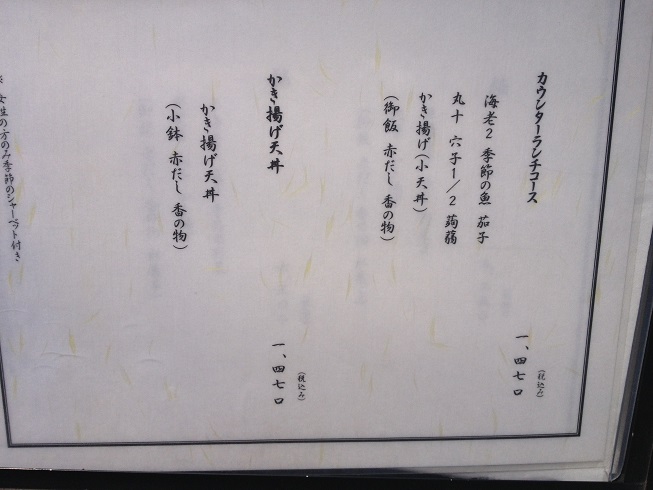 カウンターランチコース
海老2 季節の魚 茄子
丸十 穴子1/2 蒟蒻
かき揚げ(小天丼)
(御飯 赤だし 香の物)
(税込み)
一、四七〇
かき揚げ天丼
かき揚げ天丼
(小鉢 赤だし 香の物)
(税込み)
一、四七〇
※ 女性の方のみ季節のシャーベット付き